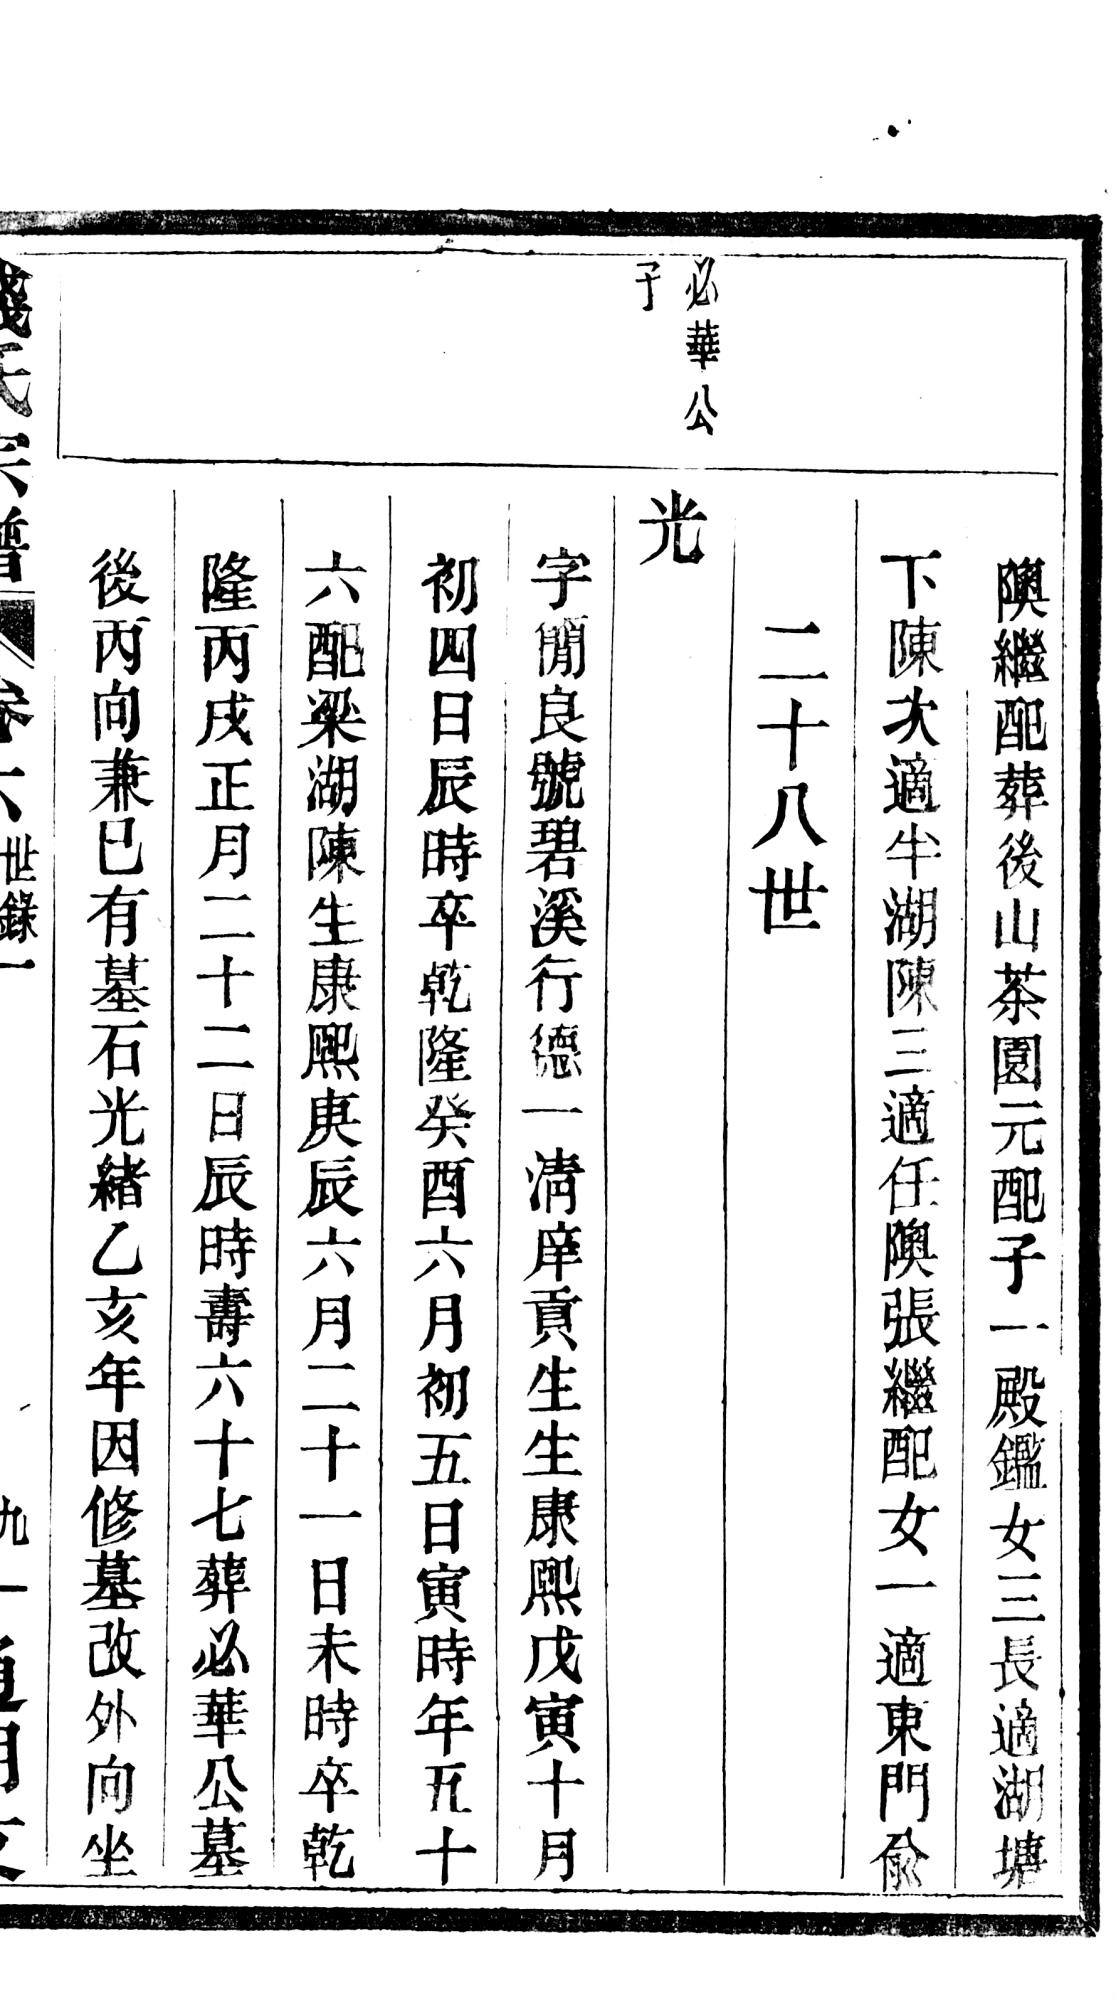 隩繼配葬後山茶園元配子一殿鑑女三長適湖塘
下陳次適牛湖陳三適任隩張繼配女一適東門俞
二十八世
必華公
子
光
字簡良號碧溪行德一清庠貢生生康熙戊寅十月
初四日辰時卒乾隆癸酉六月初五日寅時年五十
六配梁湖陳生康熙庚辰六月二十一日未時卒乾
隆丙戌正月二十二日辰時壽六十七葬必華公墓
後丙向兼巳有墓石光緒乙亥年因修墓改外向坐
錢氏宗譜 卷六 世錄一 九一 通明支